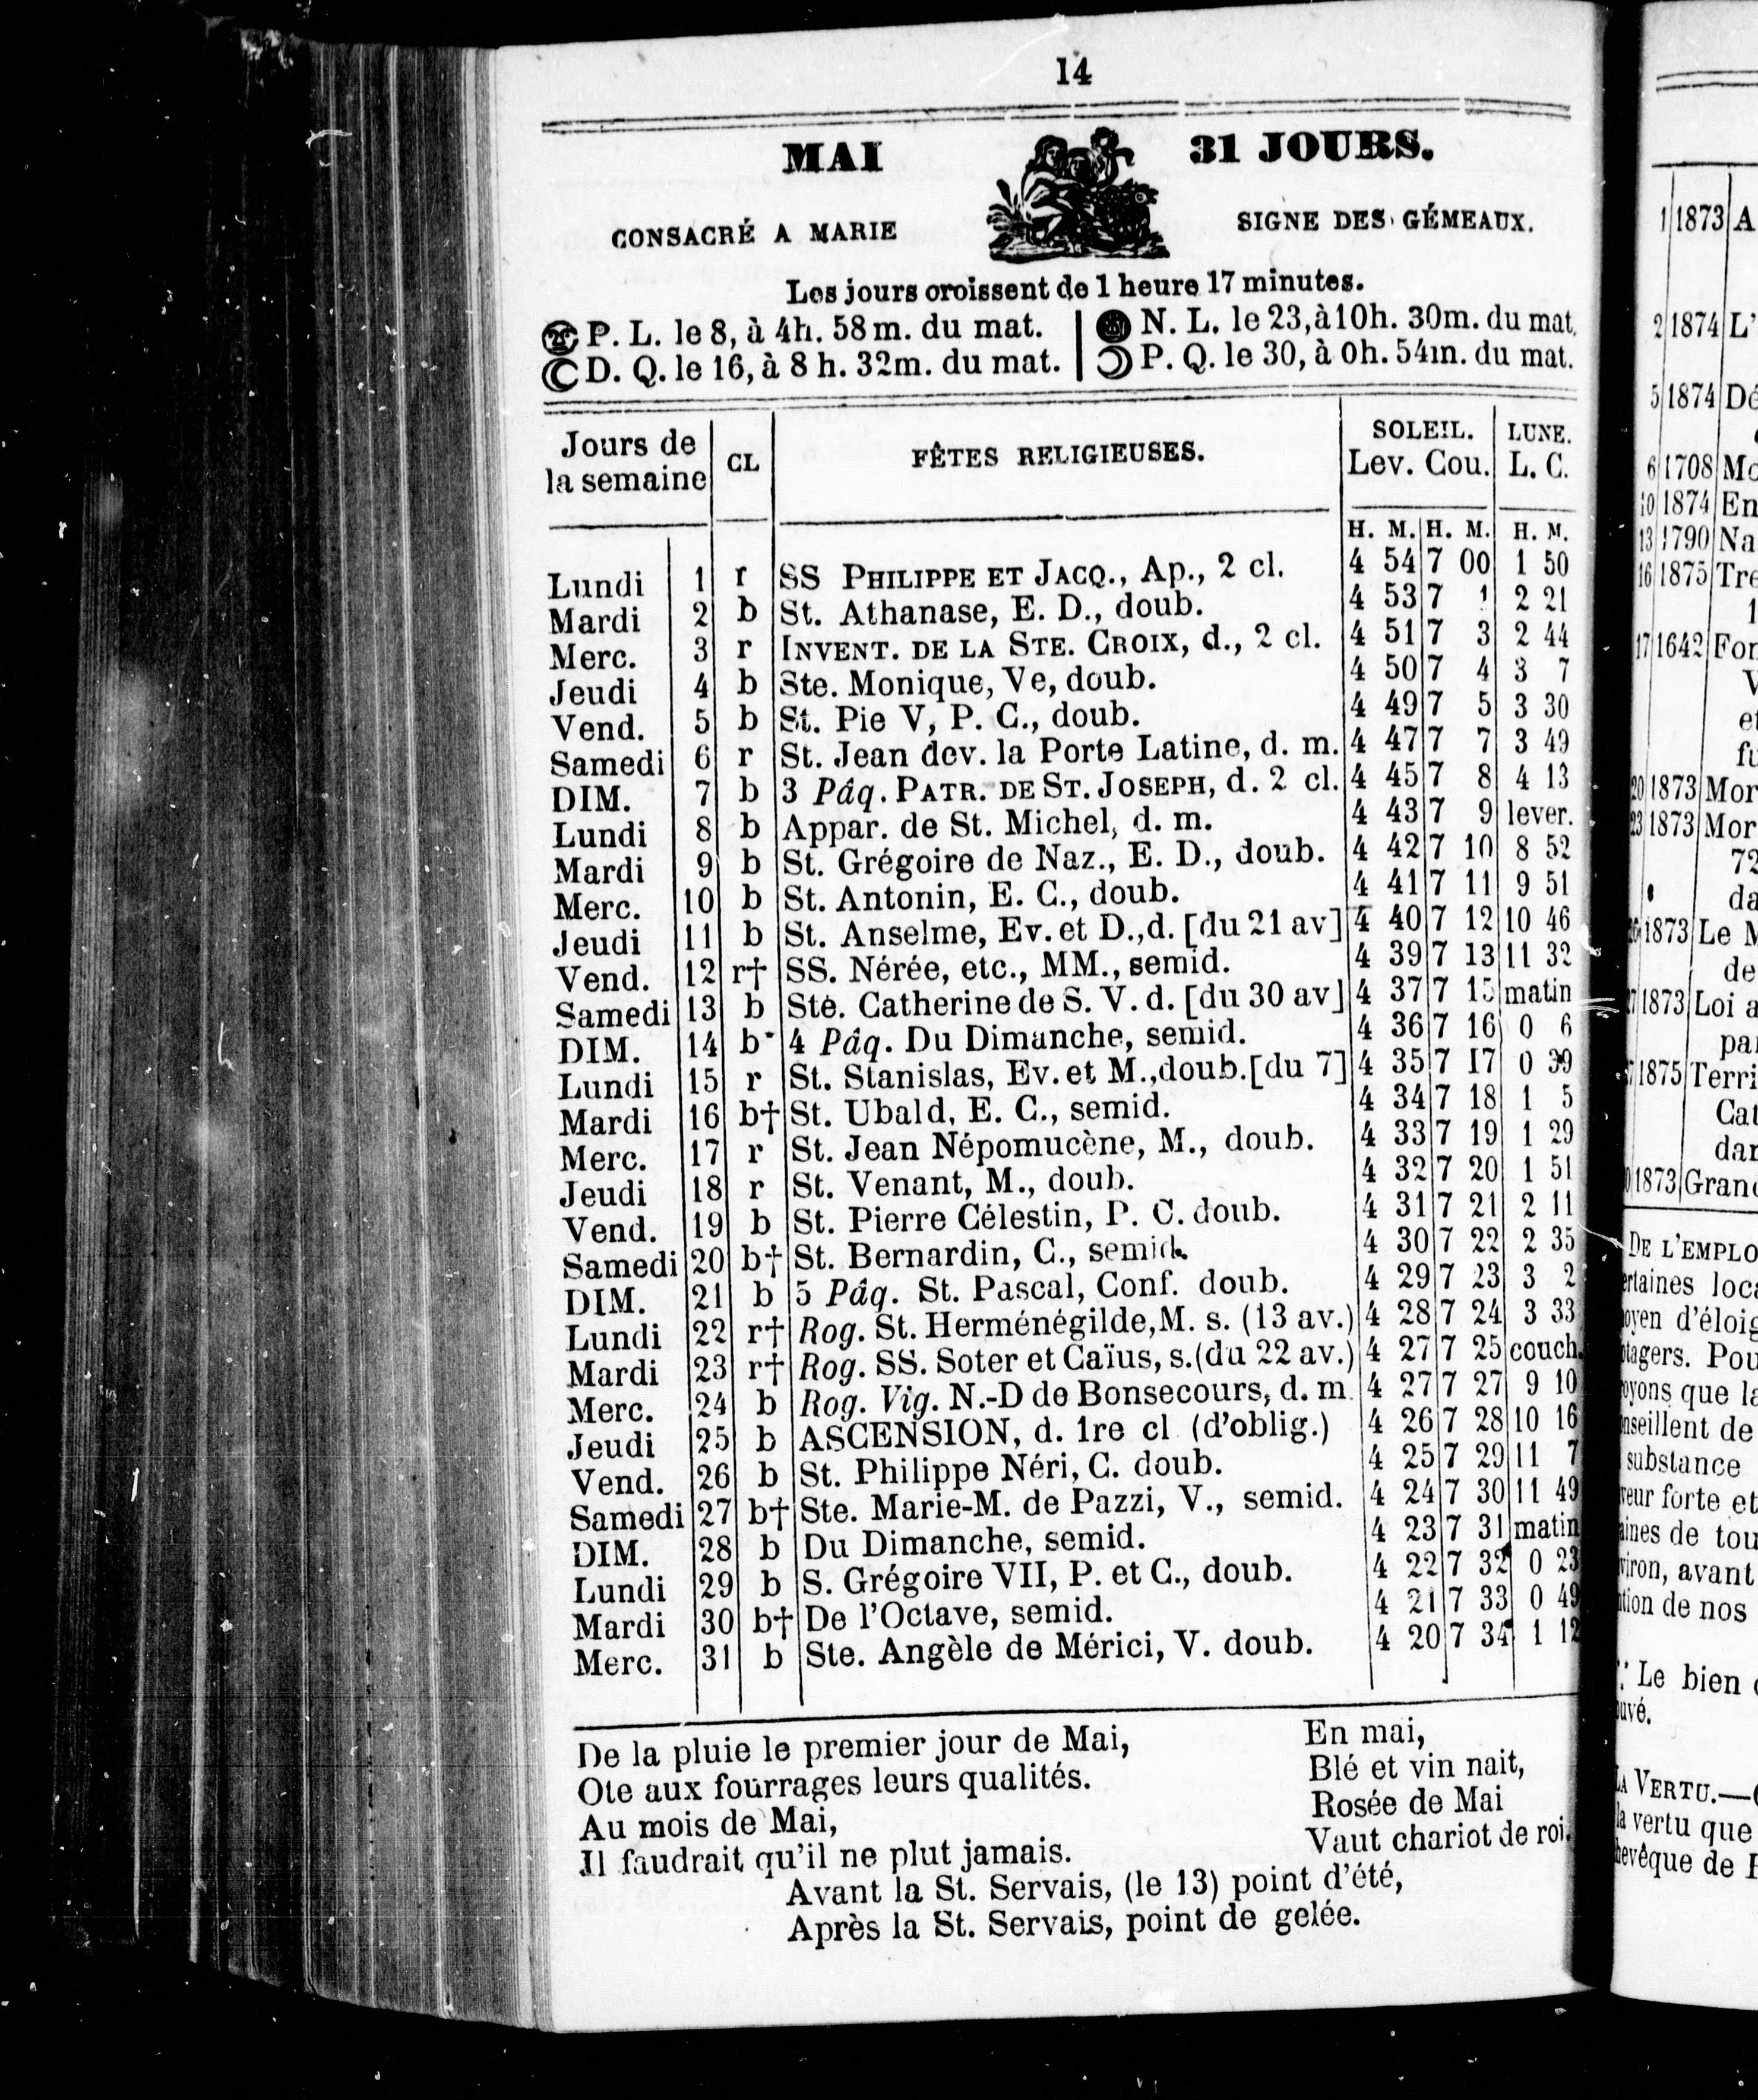 14
MAI 31 JOURS.
CONSACRÉ A MARIE SIGNE DES GÉMEAUX.
Les jours croissent de 1 heure 17 minutes.
P. L. le 8, à 4h. 58 m. du mat. N. L. le 23, à 10h. 30m. du mat.
D. Q. le 16, à 8 h. 32m. du mat. P. Q. le 30, à 0h. 54m. du mat.
Jours de la semaine CL FÊTES RELIGIEUSES. SOLEIL. Lev. Cou. LUNE. L. C.
H. M. H. M. H. M.
Lundi 1 r SS PHILIPPE ET JACQ., Ap., 2 cl. 4 54 7 00 1 50
Mardi 2 b St. Athanase, E. D., doub. 4 53 7 1 2 21
Merc. 3 r INVENT. DE LA STE. CROIX, d., 2 cl. 4 51 7 3 2 44
Jeudi 4 b Ste. Monique, Ve, doub. 4 50 7 4 3 7
Vend. 5 b St. Pie V, P. C., doub. 4 49 7 5 3 30
Samedi 6 r St. Jean dev. la Porte Latine, d. m. 4 47 7 7 3 49
DIM. 7 b 3 Pâq. PATR. DE ST. JOSEPH, d. 2 cl. 4 45 7 8 4 13
Lundi 8 b Appar. de St. Michel, d. m. 4 43 7 9 lever.
Mardi 9 b St. Grégoire de Naz., E. D., doub. 4 42 7 10 8 52
Merc. 10 b St. Antonin, E. C., doub. 4 41 7 11 9 51
Jeudi 11 b St. Anselme, Ev. et D., d. [du 21 av] 4 40 7 12 10 46
Vend. 12 r† SS. Nérée, etc., MM., semid. 4 39 7 13 11 32
Samedi 13 b Ste. Catherine de S. V. d. [du 30 av] 4 37 7 15 matin
DIM. 14 b 4 Pâq. Du Dimanche, semid. 4 36 7 16 0 6
Lundi 15 r St. Stanislas, Ev. et M., doub. [du 7] 4 35 7 17 0 39
Mardi 16 b† St. Ubald, E. C., semid. 4 34 7 18 1 5
Merc. 17 r St. Jean Népomucène, M., doub. 4 33 7 19 1 29
Jeudi 18 r St. Venant, M., doub. 4 32 7 20 1 51
Vend. 19 b St. Pierre Célestin, P. C. doub. 4 31 7 21 2 11
Samedi 20 b† St. Bernardin, C., semid. 4 30 7 22 2 35
DIM. 21 b 5 Pâq. St. Pascal, Conf. doub. 4 29 7 23 3 2
Lundi 22 r† Rog. St. Herménégilde, M. s. (13 av.) 4 28 7 24 3 33
Mardi 23 r† Rog. SS. Soter et Caïus, s. (du 22 av.) 4 27 7 25 couch.
Merc. 24 b Rog. Vig. N.-D de Bonsecours, d. m. 4 27 7 27 9 10
Jeudi 25 b ASCENSION, d. 1re cl (d'oblig.) 4 26 7 28 10 16
Vend. 26 b St. Philippe Néri, C. doub. 4 25 7 29 11 7
Samedi 27 b† Ste. Marie-M. de Pazzi, V., semid. 4 24 7 30 11 49
DIM. 28 b Du Dimanche, semid. 4 23 7 31 matin
Lundi 29 b S. Grégoire VII, P. et C., doub. 4 22 7 32 0 23
Mardi 30 b† De l'Octave, semid. 4 21 7 33 0 49
Merc. 31 b Ste. Angèle de Mérici, V. doub. 4 20 7 34 1 12
De la pluie le premier jour de Mai,
Ote aux fourrages leurs qualités.
Au mois de Mai,
Il faudrait qu'il ne plut jamais.
En mai,
Blé et vin nait,
Rosée de Mai
Vaut chariot de roi.
Avant la St. Servais, (le 13) point d'été,
Après la St. Servais, point de gelée.
1 1873 A
2 1874 L'
5 1874 Dé
6 1708 Mo
10 1874 En
13 1790 Na
16 1875 Tre
1
17 1642 For
V
et
fu
20 1873 Mor
23 1873 Mor
72
da
1873 Le M
de
1873 Loi a
par
1875 Terri
Cat
dan
1873 Grand
DE L'EMPLO
ertaines loca
oyen d'éloig
tagers. Pou
oyons que la
nseillent de
substance
veur forte et
aines de tou
viron, avant
tion de nos
Le bien
uvé.
LA VERTU.—
la vertu que
hevêque de